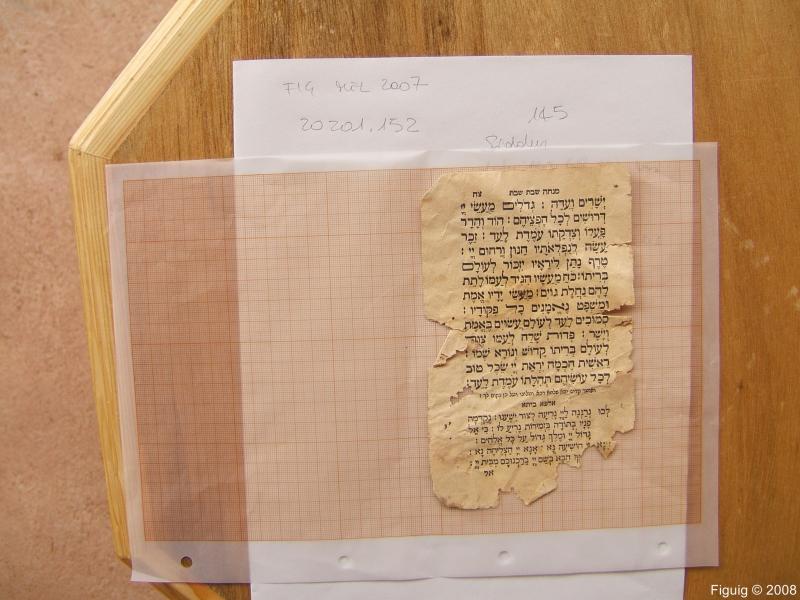 FIG MEL 2007
145
20201.152
Siddur
מנחה שבת שבת צח
יְשָׁרִים וְעֵדָה : גְּדֹלִים מַעֲשֵׂי יְיָ
דְּרוּשִׁים לְכָל חֶפְצֵיהֶם : הוֹד וְהָדָר
פָּעֳלוֹ וְצִדְקָתוֹ עֹמֶדֶת לָעַד : זֵכֶר
עָשָׂה לְנִפְלְאֹתָיו חַנּוּן וְרַחוּם יְיָ :
טֶרֶף נָתַן לִירֵאָיו יִזְכֹּר לְעוֹלָם
בְּרִיתוֹ : כֹּחַ מַעֲשָׂיו הִגִּיד לְעַמּוֹ לָתֵת
לָהֶם נַחֲלַת גּוֹיִם : מַעֲשֵׂי יָדָיו אֱמֶת
וּמִשְׁפָּט נֶאֱמָנִים כָּל פִּקּוּדָיו :
סְמוּכִים לָעַד לְעוֹלָם עֲשׂוּיִם בֶּאֱמֶת
וְיָשָׁר : פְּדוּת שָׁלַח לְעַמּוֹ צִוָּה
לְעוֹלָם בְּרִיתוֹ קָדוֹשׁ וְנוֹרָא שְׁמוֹ :
רֵאשִׁית חָכְמָה יִרְאַת יְיָ שֵׂכֶל טוֹב
לְכָל עוֹשֵׂיהֶם תְּהִלָּתוֹ עֹמֶדֶת לָעַד :
אלפא ביתא
לְכוּ נְרַנְּנָה לַיְיָ נָרִיעָה לְצוּר יִשְׁעֵנוּ : נְקַדְּמָה
פָנָיו בְּתוֹדָה בִּזְמִירוֹת נָרִיעַ לוֹ : כִּי אֵל
גָּדוֹל יְיָ וּמֶלֶךְ גָּדוֹל עַל כָּל אֱלֹהִים :
הוֹשִׁיעָה נָּא אָנָּא יְיָ הַצְלִיחָה נָא :
הַבָּא בְּשֵׁם יְיָ בֵּרַכְנוּכֶם מִבֵּית יְיָ :
אל
Figuig © 2008